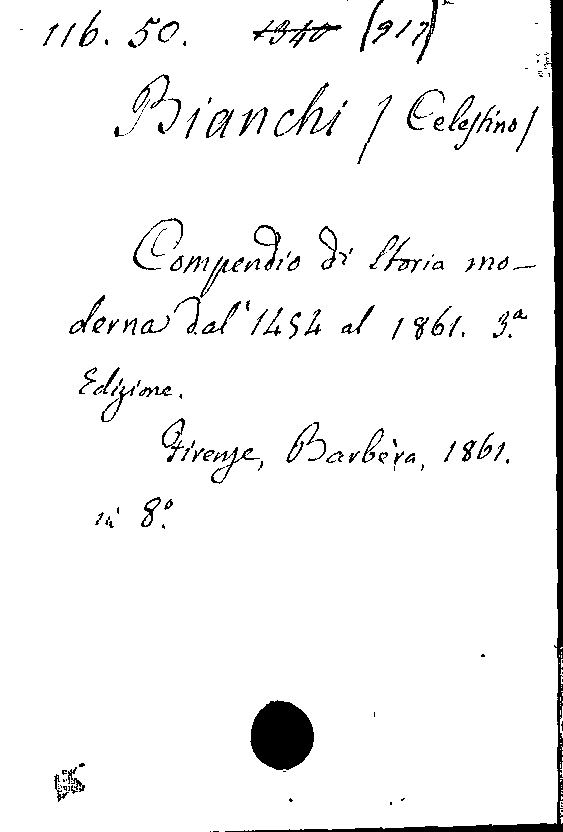 116. 50. 1340 (917)
Bianchi / Celestino /
Compendio di Storia mo-
derna dal 1454 al 1861. 3.ª
Edizione.
Firenze, Barbèra, 1861.
in 8.º